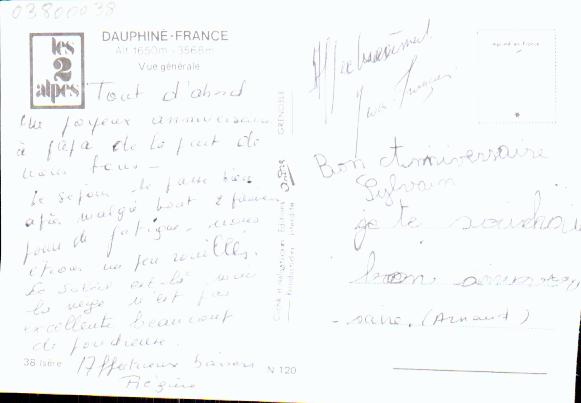 03800038
les
2
alpes
DAUPHINÉ-FRANCE
Alt 1650m - 3568m
Vue générale
Tout d'abord
un joyeux anniversaire
à papa de la part de
nous tous -
Le séjour se passe bien
malgré
de fatigue, nous
étions un peu rouillés.
Le soleil est là mais
la neige n'est pas
excellente beaucoup
de poudreuse.
Affectueux baisers
Régine
38 Isère
N 120
GRENOBLE
Affectueusement
Bon Anniversaire
Sylvain
je te souhai
bon anniver
-saire. (Arnaud)